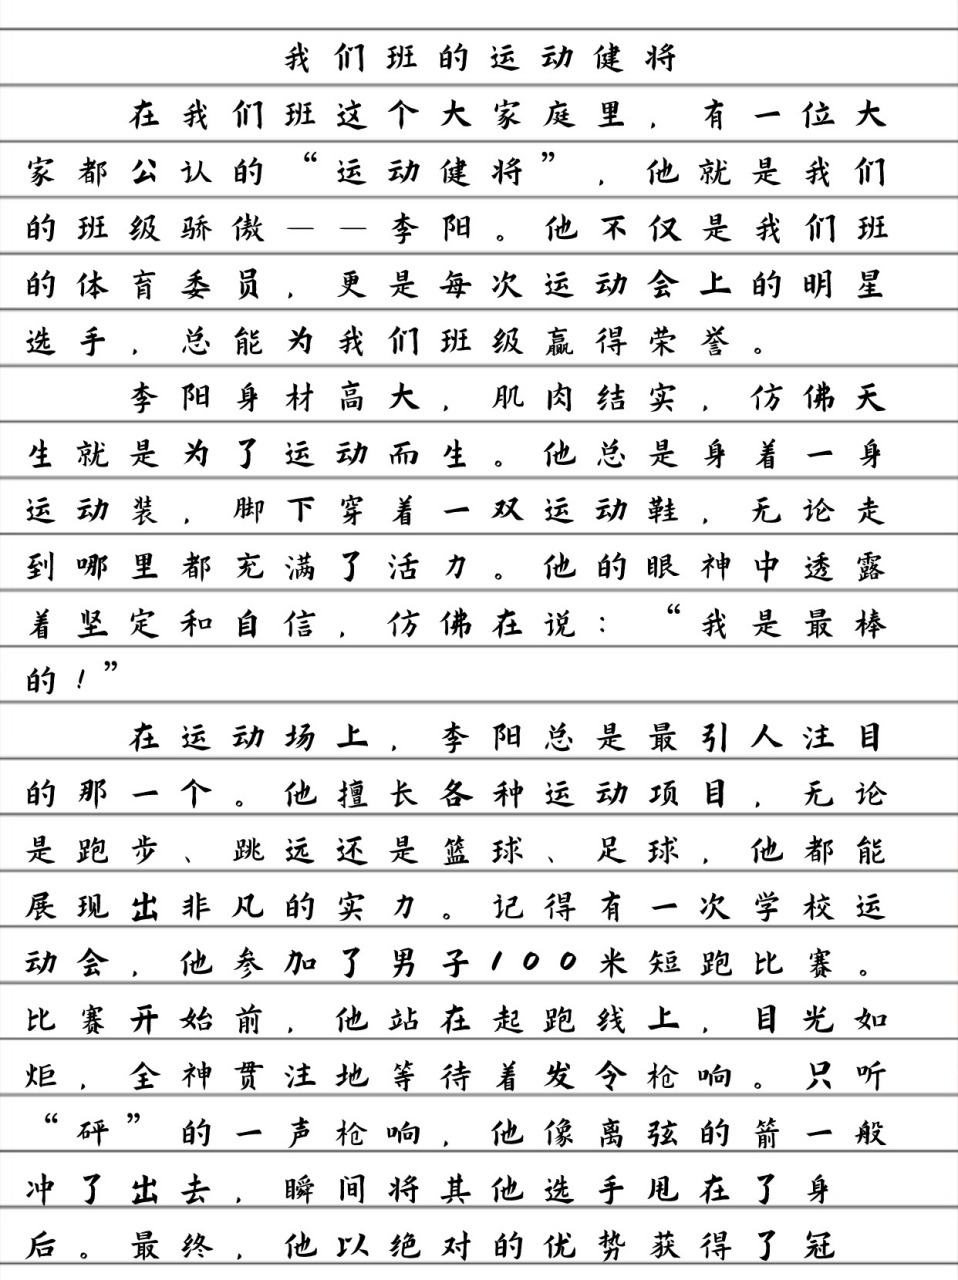 我们班的运动健将
在我们班这个大家庭里，有一位大
家都公认的“运动健将”，他就是我们
的班级骄傲——李阳。他不仅是我们班
的体育委员，更是每次运动会上的明星
选手，总能为我们班级赢得荣誉。
李阳身材高大，肌肉结实，仿佛天
生就是为了运动而生。他总是身着一身
运动装，脚下穿着一双运动鞋，无论走
到哪里都充满了活力。他的眼神中透露
着坚定和自信，仿佛在说：“我是最棒
的！”
在运动场上，李阳总是最引人注目
的那一个。他擅长各种运动项目，无论
是跑步、跳远还是篮球、足球，他都能
展现出非凡的实力。记得有一次学校运
动会，他参加了男子100米短跑比赛。
比赛开始前，他站在起跑线上，目光如
炬，全神贯注地等待着发令枪响。只听
“砰”的一声枪响，他像离弦的箭一般
冲了出去，瞬间将其他选手甩在了身
后。最终，他以绝对的优势获得了冠